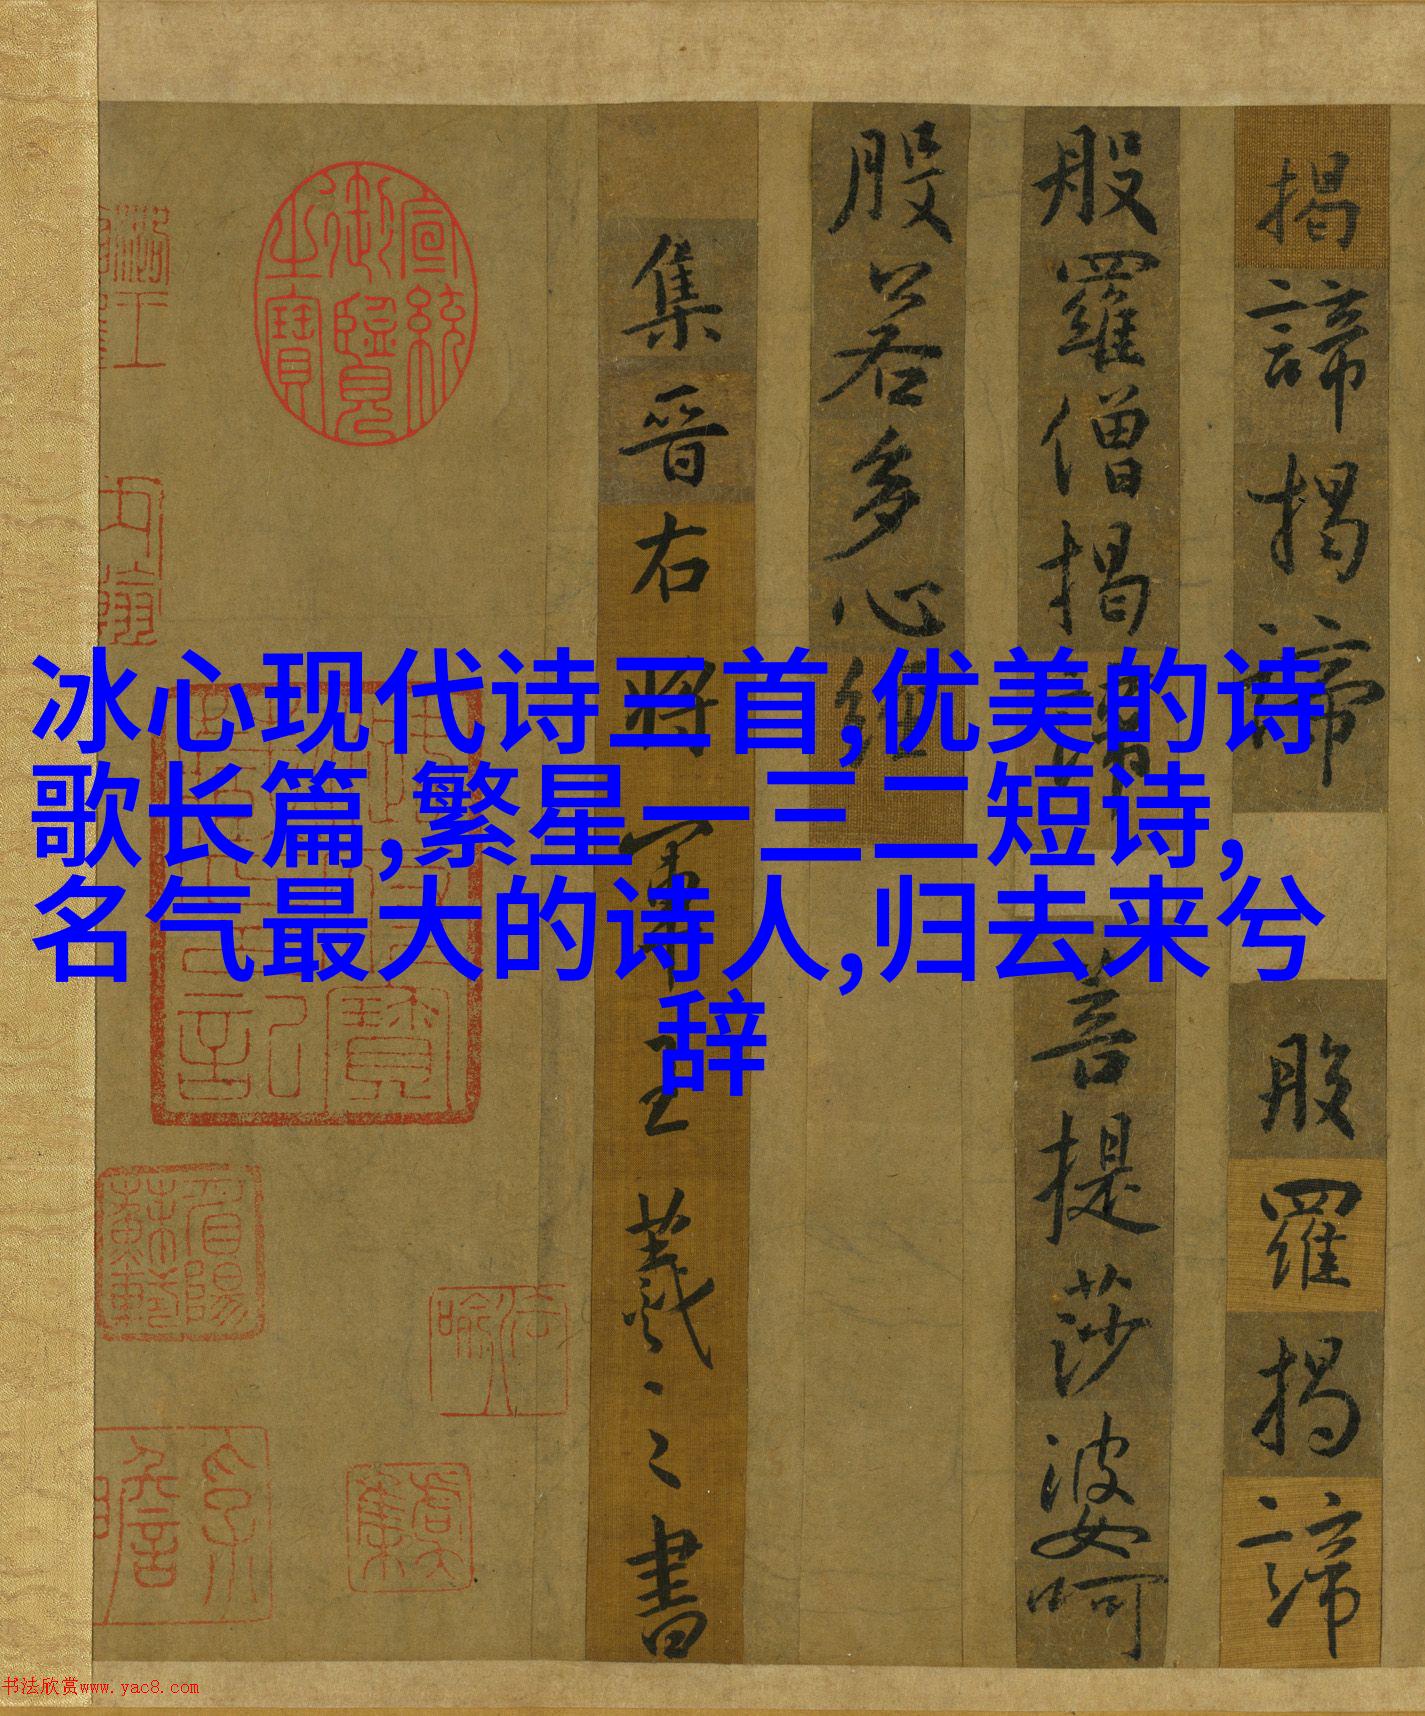 揭諦揭諦
般羅揭諦
般羅僧揭諦
菩提莎婆呵
般若多心經
集晉右將軍王羲之書
宣統御覽之寶
冰心现代诗三首,优美的诗
歌长篇,繁星一三二短诗,
名气最大的诗人,归去来兮
辞
书法欣赏www.yac8.com